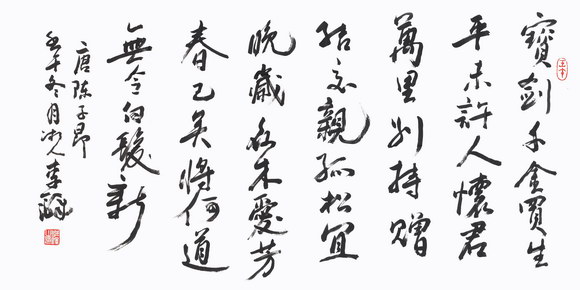 寶劍千金買生
平未許人懷君
萬里別持贈
結交親孤松宜
晚歲衆木愛芳
春已矣將何道
無令白髮新
唐陳子昂
壬午冬月李